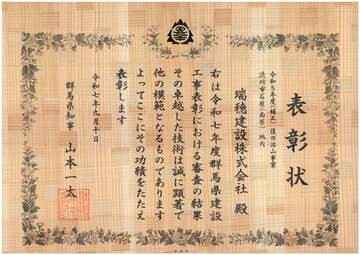 表彰状
令和5年度(補正)復旧治山事業
渋川市石原(南原)地内
瑞穂建設株式会社 殿
右は令和七年度群馬県建設
工事表彰における審査の結果
その卓越した技術は誠に顕著で
他の模範となるものであります
よってここにその功績をたたえ
表彰します
令和七年九月十日
群馬県知事 山本一太